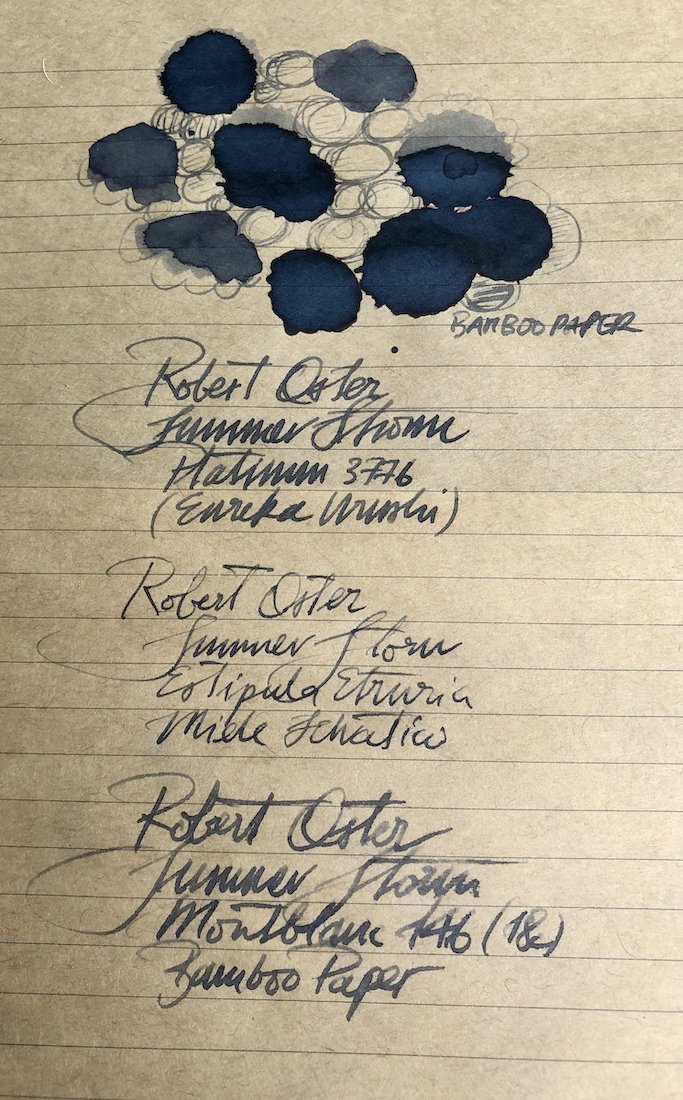 BAMBOO PAPER
Robert Oster
Summer Storm
Platinum 3776
(Eureka Urushi)
Robert Oster
Summer Storm
Estipula Etruria
Miele Selvatico
Robert Oster
Summer Storm
Montblanc 146
Bamboo Paper